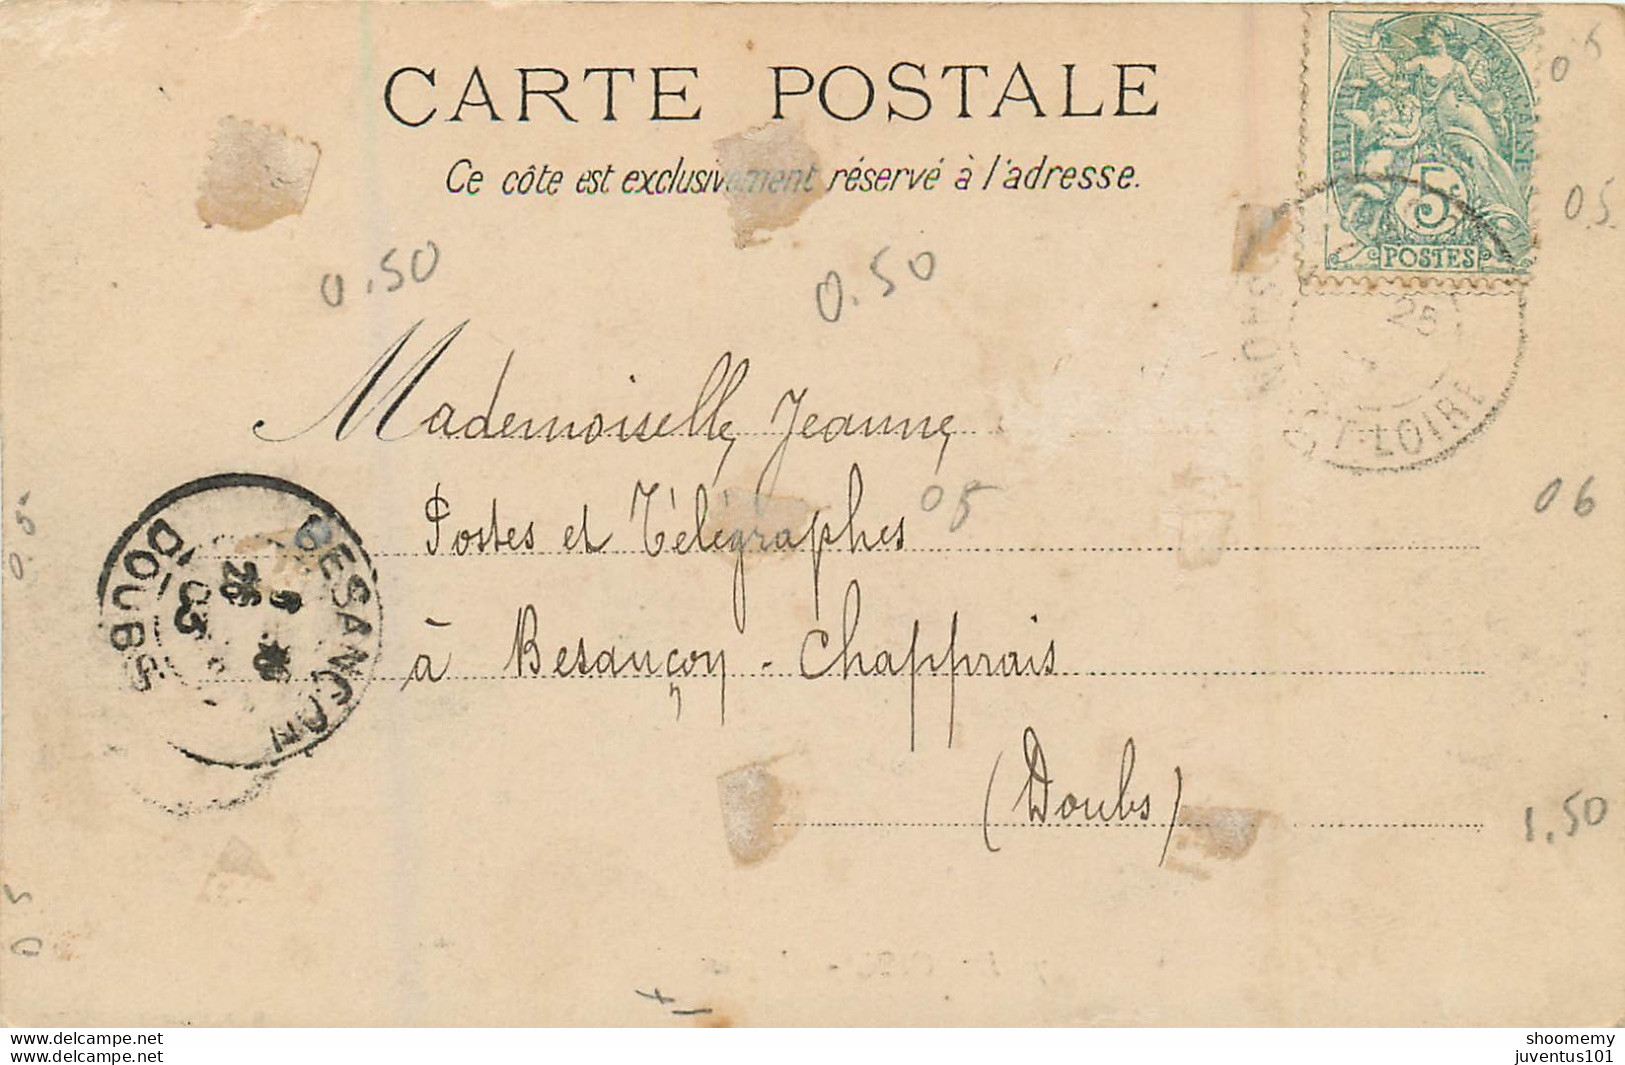 CARTE POSTALE
Ce côte est exclusivement réservé à l'adresse.
5c
POSTES
0.5
0.50
0.50
25
ET-LOIRE
Mademoiselle Jeanne,
Postes et Télégraphes
05
06
0.5
à Besançon - Chapprais
(Doubs)
BESANCON
DOUBS
26
03
1.50
05
delcampe.net
shoomemy
delcampe.net
juventus101